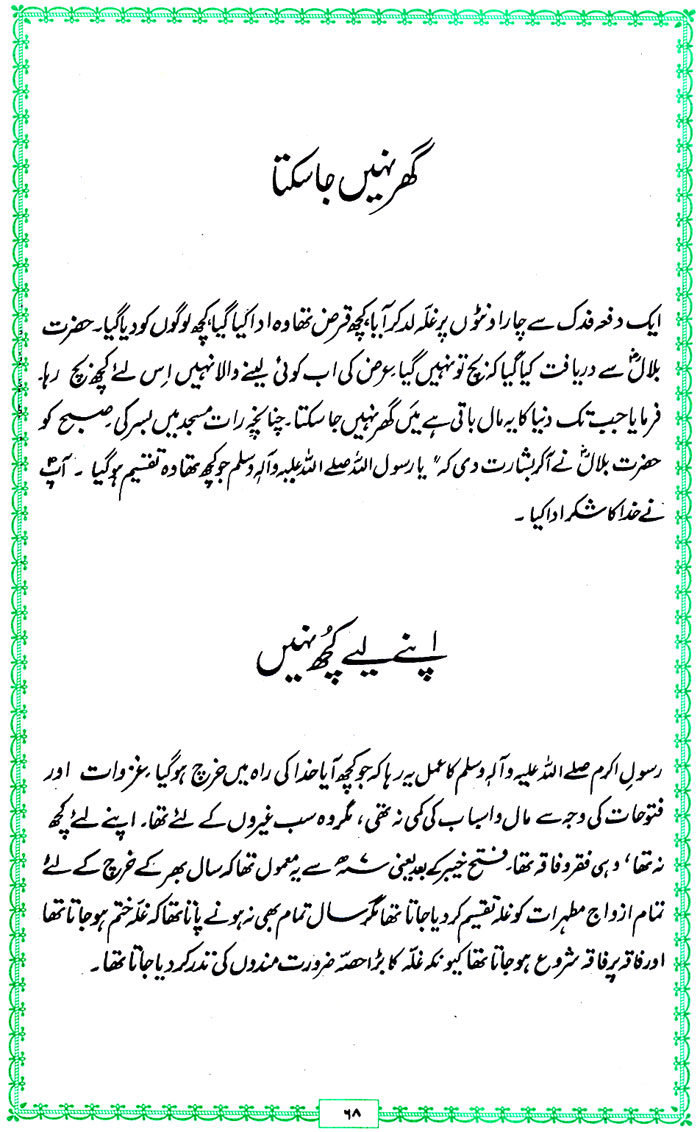 گھر نہیں جا سکتا
ایک دفعہ فدک سے چار اونٹوں پر غلّہ لد کر آیا، کچھ قرض تھا وہ ادا کیا گیا، کچھ لوگوں کو دیا گیا۔ حضرت
بلالؓ سے دریافت کیا گیا کہ بچ تو نہیں گیا عرض کی اب کوئی لینے والا نہیں اِس لئے کچھ بچ رہا۔
فرمایا جب تک دنیا کا یہ مال باقی ہے میَں گھر نہیں جا سکتا۔ چنانچہ رات مسجد میں بسر کی۔ صبح کو
حضرت بلالؓ نے آکر بشارت دی کہ "یا رسول اللہ صلے اللہ علیہ وآلہٖ وسلم جو کچھ تھا وہ تقسیم ہو گیا ۔ آپؐ
نے خدا کا شکر ادا کیا ۔
اپنے لیے کچُھ نہیں
رسولِ اکرم صلے اللہ علیہ وآلہٖ وسلم کا عمل یہ رہا کہ جو کچھ آیا خدا کی راہ میں خرچ ہو گیا ۔ غزوات اور
فتوحات کی وجہ سے مال و اسباب کی کمی نہ تھی، مگر وہ سب غیروں کے لئے تھا۔ اپنے لئے کچھ
نہ تھا، وہی فقر و فاقہ تھا۔ فتح خیبر کے بعد یعنی ۷ھ سے یہ معمول تھا کہ سال بھر کے خرچ کے لئے
تمام ازواجِ مطہرات کو غلہ تقسیم کر دیا جاتا تھا مگر سال تمام بھی نہ ہونے پاتا تھا کہ غلّہ ختم ہو جاتا تھا
اور فاقہ پر فاقہ شروع ہو جاتا تھا کیونکہ غلّہ کا بڑا حصّہ ضرورت مندوں کی نذر کر دیا جاتا تھا۔
۶۸